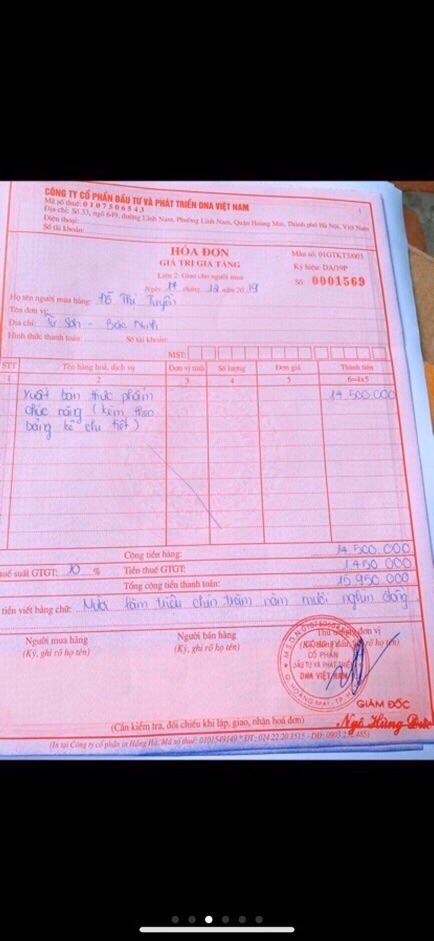 CÔNG TY CỔ PHẦN ĐẦU TƯ VÀ PHÁT TRIỂN DNA VIỆT NAM
Mã số thuế: 0107506543
Địa chỉ: Số 33, ngõ 649, đường Lĩnh Nam, Phường Lĩnh Nam, Quận Hoàng Mai, Thành phố Hà Nội, Việt Nam
Điện thoại:
Số tài khoản:
HÓA ĐƠN
GIÁ TRỊ GIA TĂNG
Liên 2: Giao cho người mua
Ngày 17 tháng 12 năm 2019
Mẫu số: 01GTKT3/003
Ký hiệu: DA/19P
Số: 0001569
Họ tên người mua hàng: Đỗ Thị Tuyền
Tên đơn vị:
Địa chỉ: Từ Sơn - Bắc Ninh
Hình thức thanh toán: Số tài khoản:
MST:
STT Tên hàng hóa, dịch vụ Đơn vị tính Số lượng Đơn giá Thành tiền
1 2 3 4 5 6=4x5
Xuất bán thực phẩm 14.500.000
chức năng (kèm theo
bảng kê chi tiết)
Cộng tiền hàng: 14.500.000
uế suất GTGT: 10 % Tiền thuế GTGT: 1.450.000
Tổng cộng tiền thanh toán: 15.950.000
tiền viết bằng chữ: Mười lăm triệu chín trăm năm mươi nghìn đồng
Người mua hàng Người bán hàng Thủ đơn vị
(Ký, ghi rõ họ tên) (Ký, ghi rõ họ tên) rõ họ tên)
CỔ PHẦN
ĐẦU TƯ VÀ PHÁT TRIỂN
DNA VIỆT NAM
Q. HOÀNG MAI - TP.
GIÁM ĐỐC
Ngô Hùng Đức
(Cần kiểm tra, đối chiếu khi lập, giao, nhận hoá đơn)
(In tại Công ty cổ phần in Hồng Hà, Mã số thuế: 0101549149 * ĐT: 024 22 20 1515 - DĐ: 0903